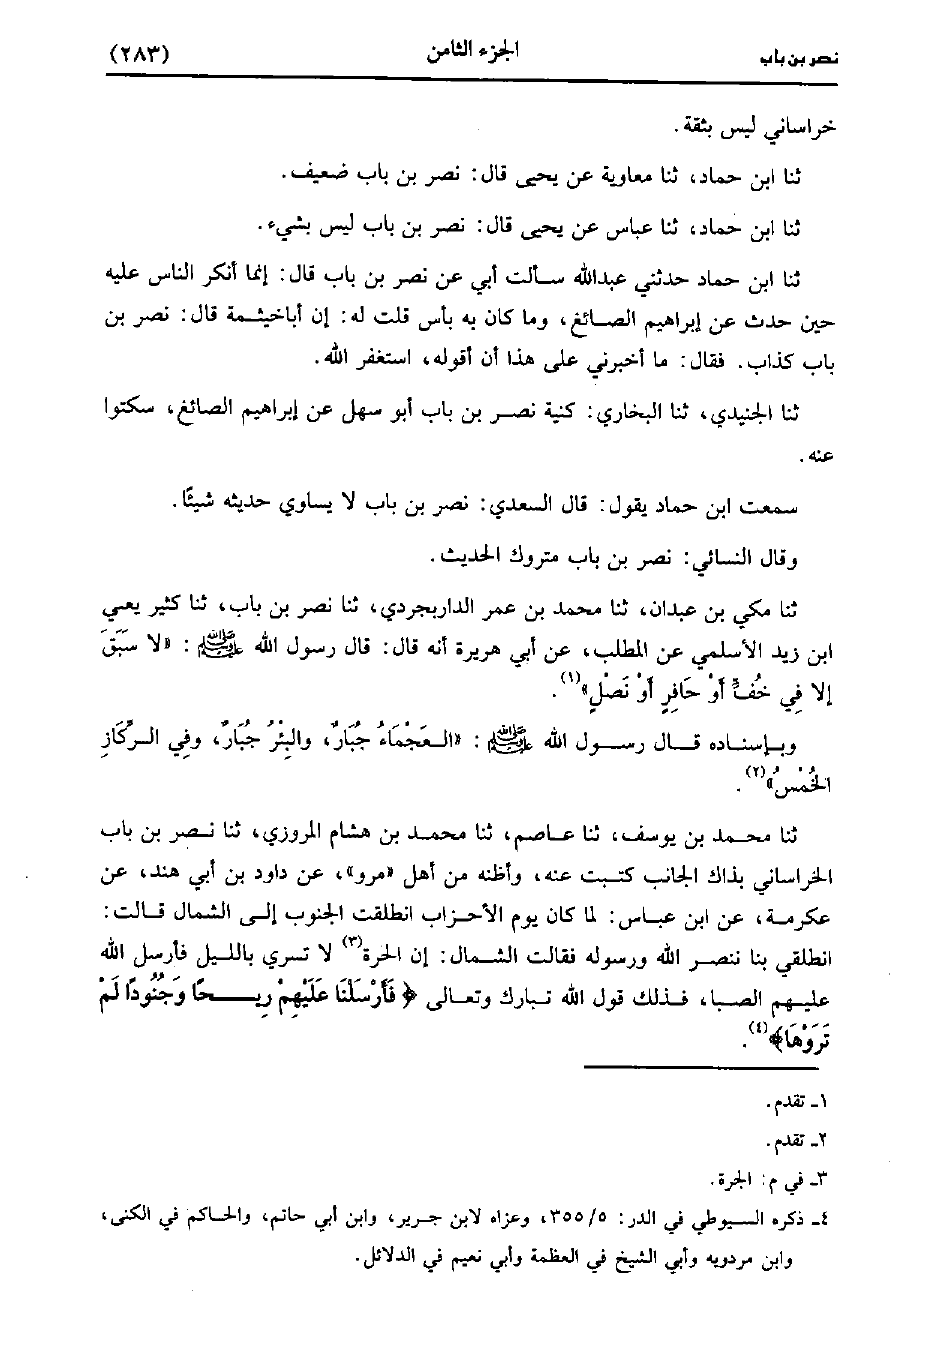 نصر بن باب الجزء الثامن (٢٨٣)
خراساني ليس بثقة.
ثنا ابن حماد، ثنا معاوية عن يحيى قال: نصر بن باب ضعيف.
ثنا ابن حماد، ثنا عباس عن يحيى قال: نصر بن باب ليس بشيء.
ثنا ابن حماد حدثني عبدالله سألت أبي عن نصر بن باب قال: إنما أنكر الناس عليه
حين حدث عن إبراهيم الصائغ، وما كان به بأس قلت له: إن أباخيثمة قال: نصر بن
باب كذاب. فقال: ما أخبرني على هذا أن أقوله، استغفر الله.
ثنا الجنيدي، ثنا البخاري: كنية نصر بن باب أبو سهل عن إبراهيم الصائغ، سكتوا
عنه.
سمعت ابن حماد يقول: قال السعدي: نصر بن باب لا يساوي حديثه شيئًا.
وقال النسائي: نصر بن باب متروك الحديث.
ثنا مكي بن عبدان، ثنا محمد بن عمر الداربجردي، ثنا نصر بن باب، ثنا كثير يعني
ابن زيد الأسلمي عن المطلب، عن أبي هريرة أنه قال: قال رسول الله ﷺ: «لا سَبَقَ
إلا فِي خُفٍّ أَوْ حَافِرٍ أَوْ نَصْلٍ»(١).
وبإسناده قال رسول الله ﷺ: «العَجْمَاءُ جُبَارٌ، والبِئْرُ جُبَارٌ، وفِي الرِّكَازِ
الخُمْسُ»(٢).
ثنا محمد بن يوسف، ثنا عاصم، ثنا محمد بن هشام المروزي، ثنا نصر بن باب
الخراساني بذاك الجانب كتبت عنه، وأظنه من أهل «مرو»، عن داود بن أبي هند، عن
عكرمة، عن ابن عباس: لما كان يوم الأحزاب انطلقت الجنوب إلى الشمال قالت:
انطلقي بنا ننصر الله ورسوله فقالت الشمال: إن الحرة(٣) لا تسري بالليل فأرسل الله
عليهم الصبا، فذلك قول الله تبارك وتعالى ﴿فَأَرْسَلْنَا عَلَيْهِمْ رِيحًا وَجُنُودًا لَمْ
تَرَوْهَا﴾(٤).
١ـ تقدم.
٢ـ تقدم.
٣ـ في م: الجرة.
٤ـ ذكره السيوطي في الدر: ٣٥٥/٥، وعزاه لابن جرير، وابن أبي حاتم، والحاكم في الكنى،
وابن مردويه وأبي الشيخ في العظمة وأبي نعيم في الدلائل.